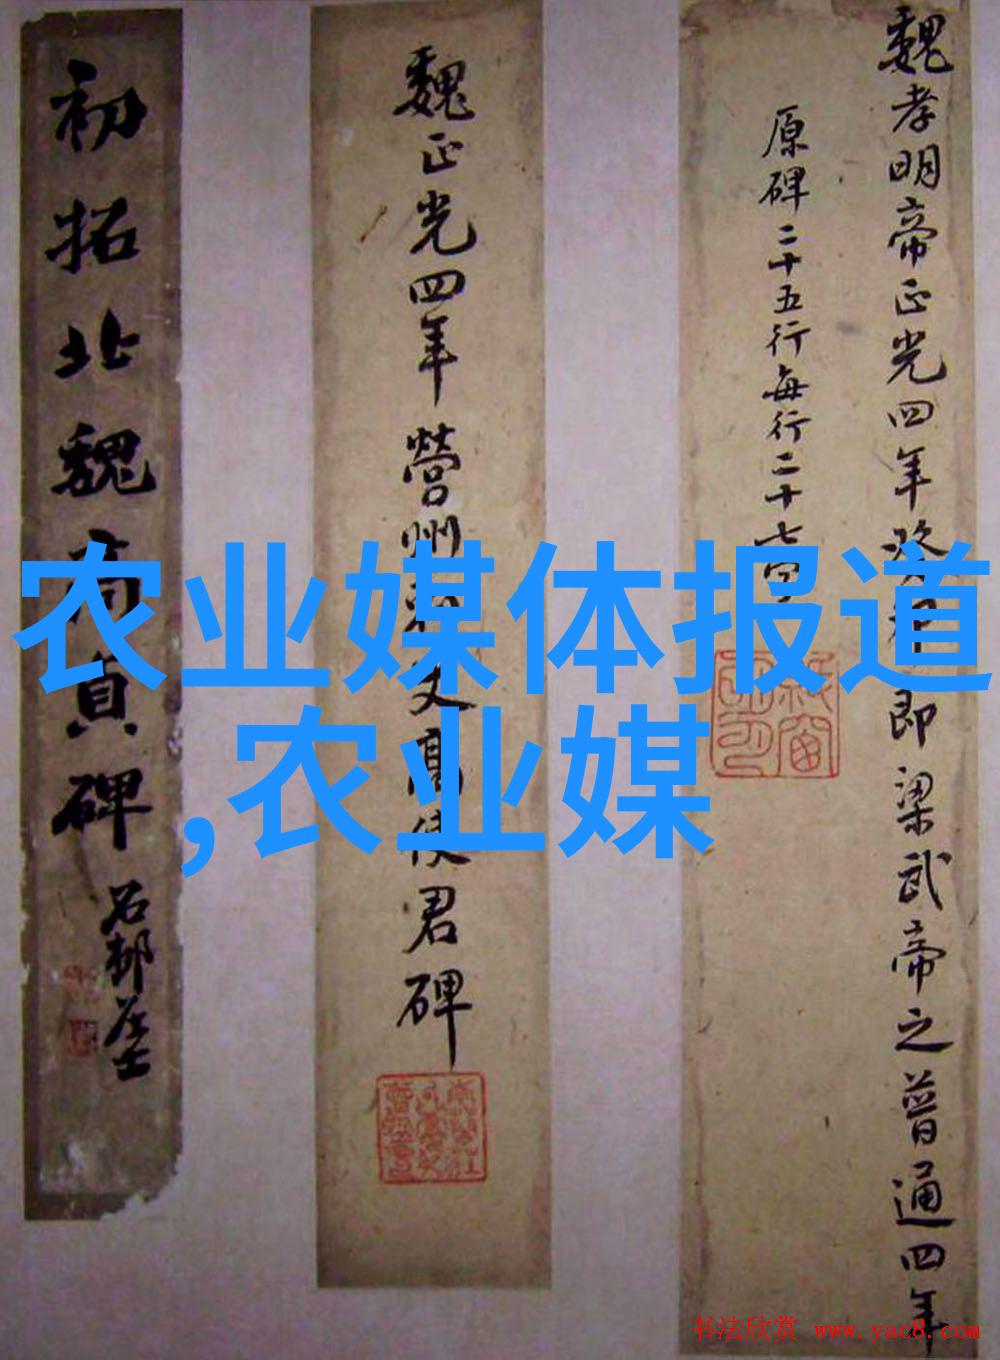 魏孝明帝正光四年癸卯即梁武帝之普通四年
原碑二十五行每行二十七字
魏正光四年營州刺史高使君碑
初拓北魏高貞碑
石邨居士
农业媒体报道
,农业媒
书法欣赏 www.yac8.com